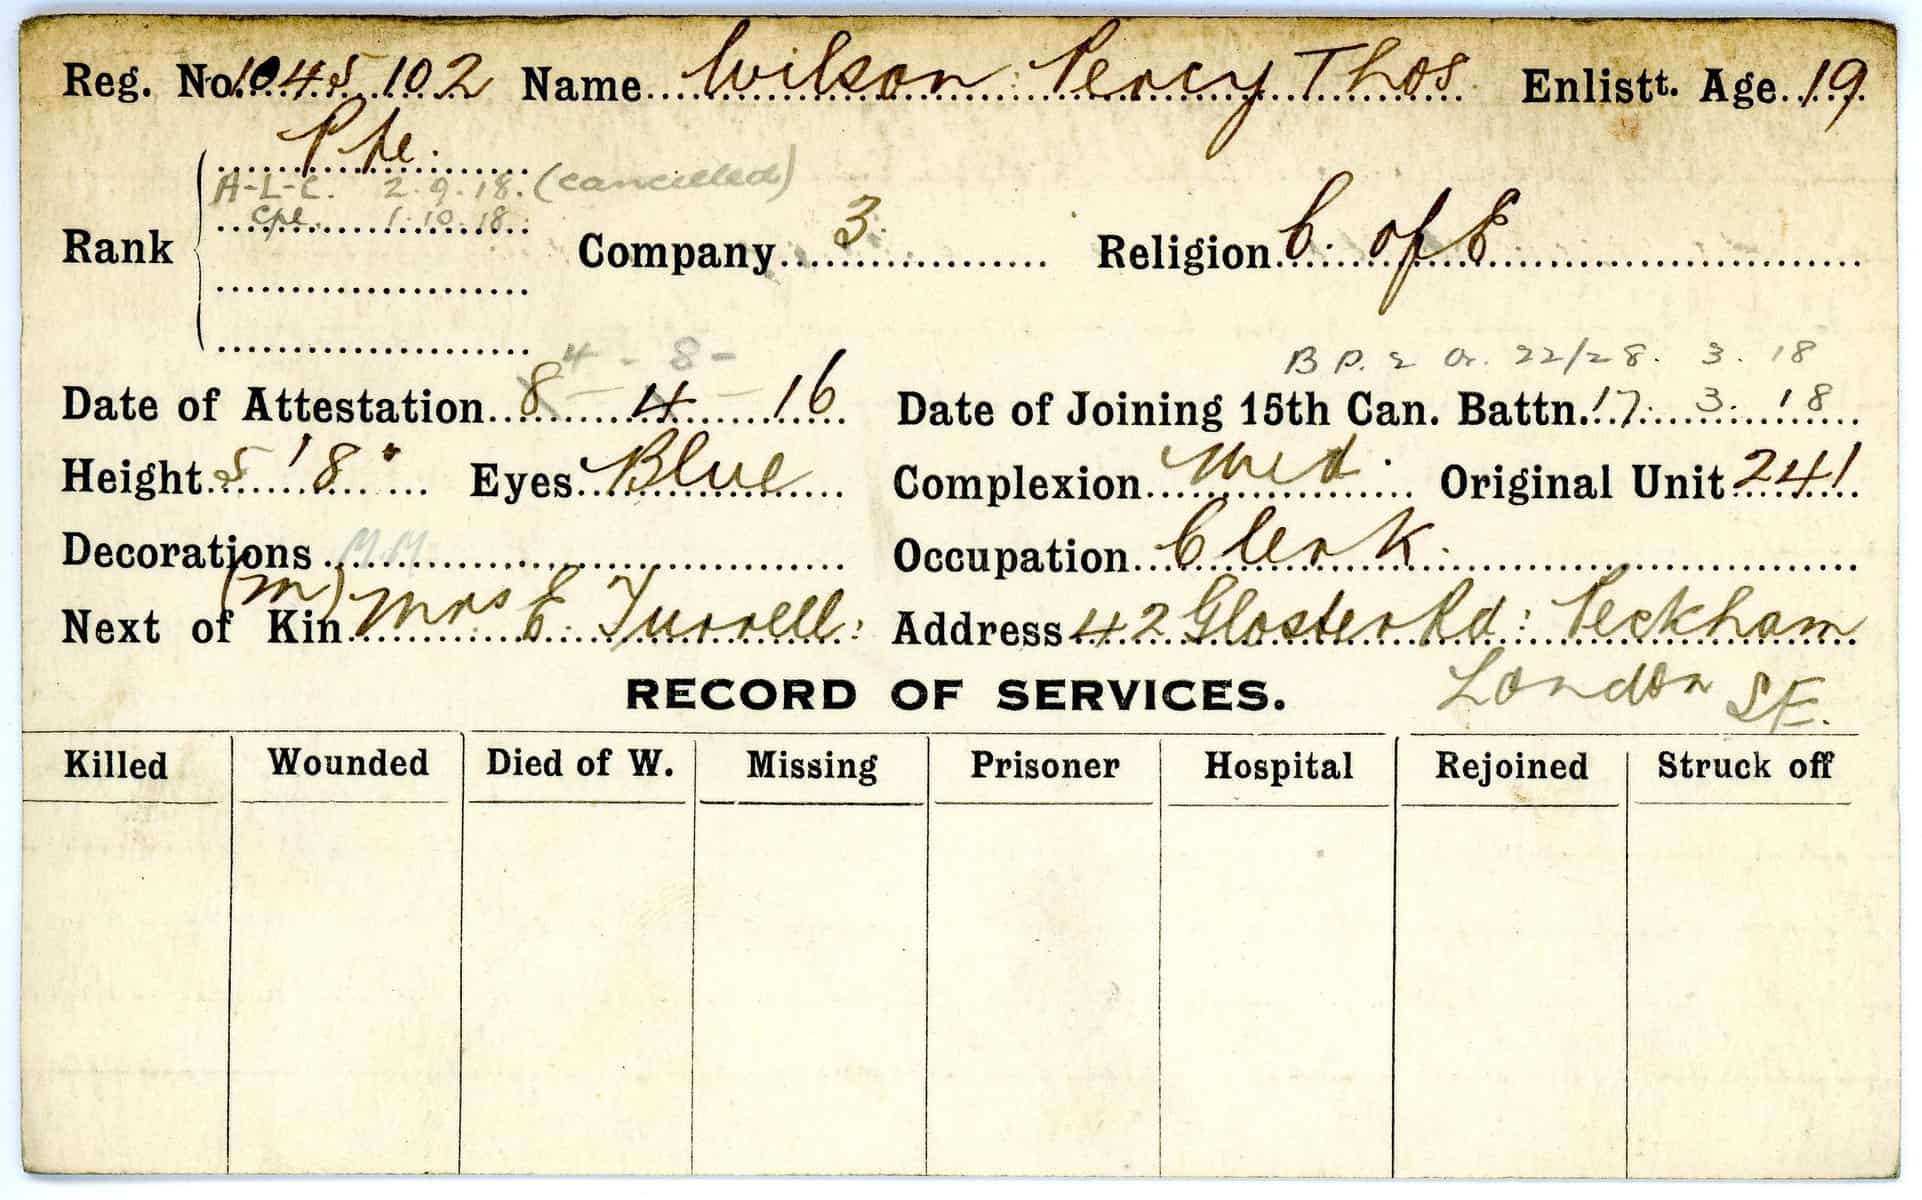 Reg. No. 1045102 Name Wilson Percy Thos Enlistt. Age 19
Pte.
A-L-C. 2.9.18. (cancelled)
Cpl. 1.10.18.
Rank Company 3 Religion C. of E
4 - 8 -
B P. 2 Or. 22/28. 3. 18
Date of Attestation 8 - 4 - 16 Date of Joining 15th Can. Battn. 17. 3. 18
Height 5' 8" Eyes Blue Complexion Med. Original Unit 241
Decorations M.M Occupation Clerk.
(m)
Next of Kin Mrs E. Turrell: Address 42 Gloster Rd: Peckham
London S.E.
RECORD OF SERVICES.
Killed Wounded Died of W. Missing Prisoner Hospital Rejoined Struck off